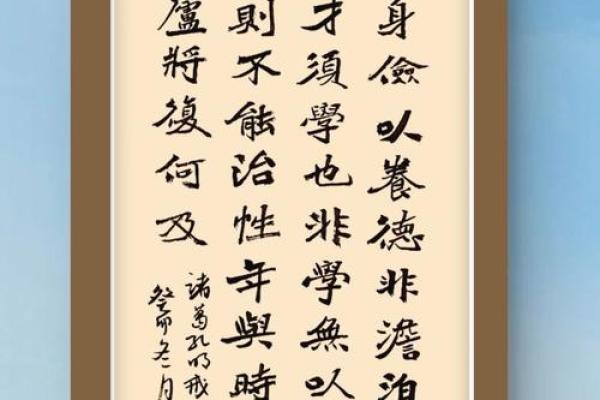 身儉以養德非澹泊
才須學也非學無以
則不能治性年與時
廬將復何及
諸葛孔明戒
癸卯冬月